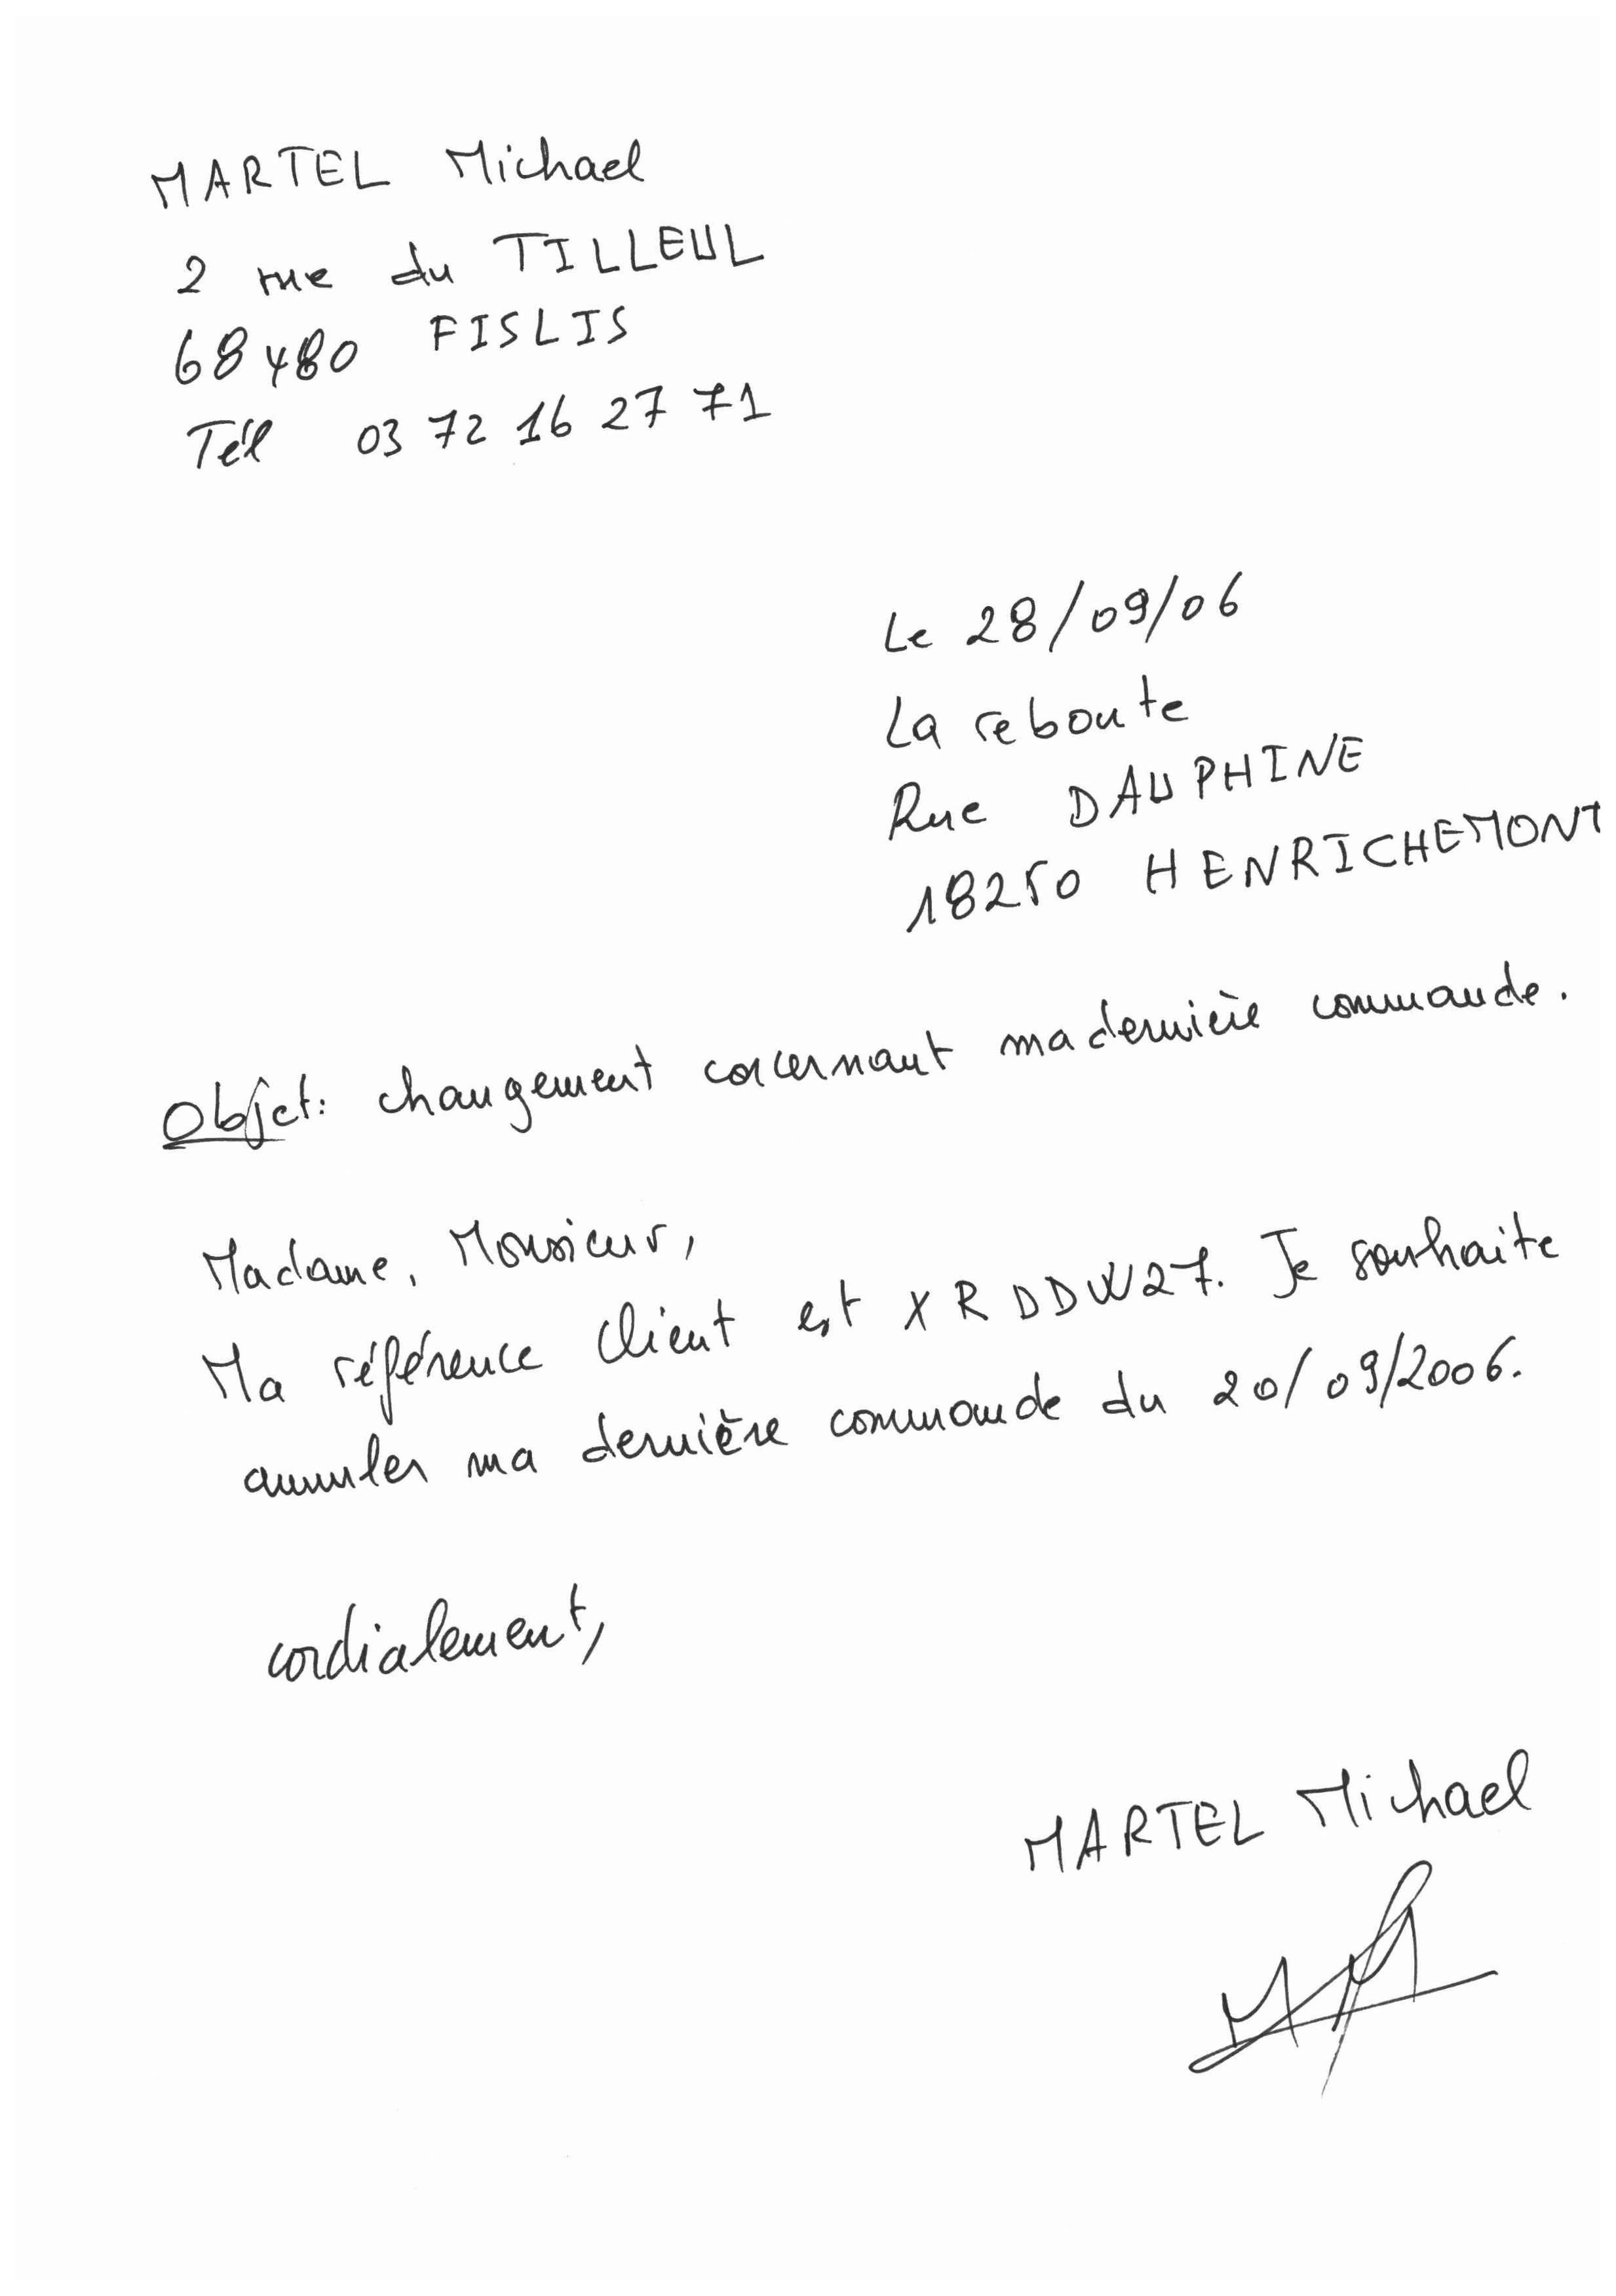 MARTEL Michael
2 rue du TILLEUL
68480 FISLIS
Tél 03 72 16 27 71
Le 28/09/06
La reboute
Rue DAUPHINE
18250 HENRICHEMONT
Objet: changement concernant ma dernière commande.
Madame, Monsieur,
Ma référence client est XRDDW27. Je souhaite
annuler ma dernière commande du 20/09/2006.
cordialement,
MARTEL Michael